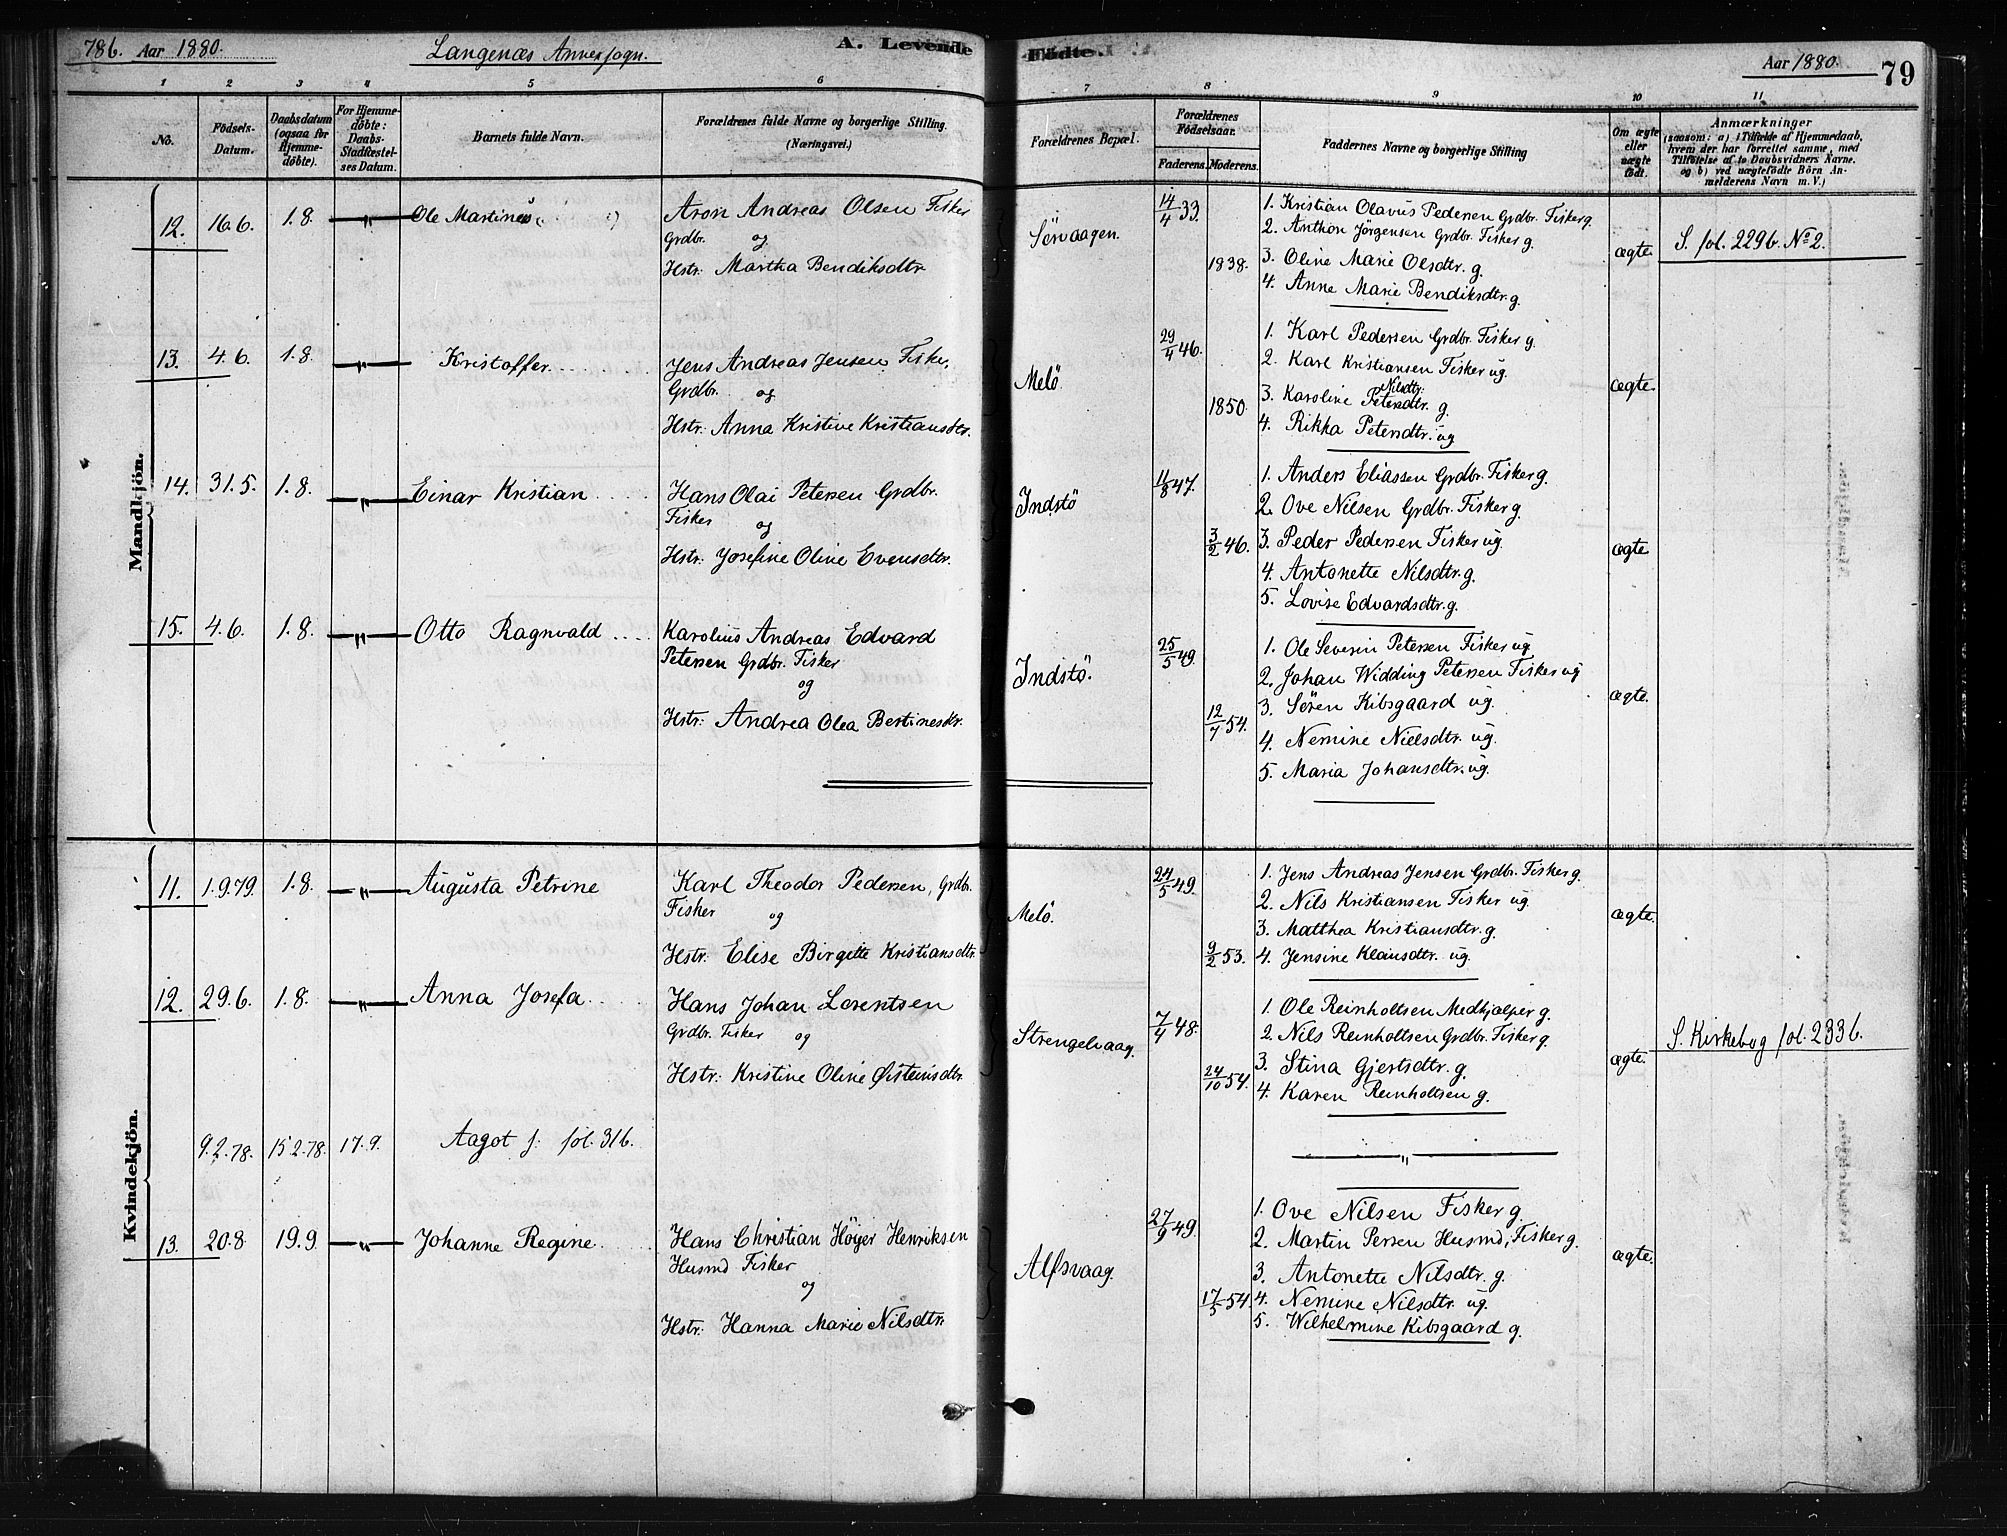 78b. Aar 1880. Langenæs Annexsogn. A. Levende Födte. Aar 1880. 79
1 2 3 4 5 6 7 8 9 10 11
No.
Födsels-Datum.
Daabsdatum (ogsaa for Hjemme-döbte).
For Hjemme-döbte: Daabs-Stadfæstel-ses Datum.
Barnets fulde Navn.
Forældrenes fulde Navne og borgerlige Stilling.
(Næringsvei.)
Forældrenes Bopæl.
Forældrenes Födselsaar.
Faderens. Moderens.
Faddernes Navne og borgerlige Stilling
Om ægte eller uægte födt.
Anmærkninger
(saasom: a) i Tilfælde af Hjemmedaab, hvem der har forrettet samme, med Tilföielse af to Daabsvidners Navne. og b) ved uægtefödte Börn An-melderens Navn m. V.)
Mandkjön.
12. 16.6. 1.8. " Ole Martinus
Aron Andreas Olsen Fisker
Grdbr. og
Hstr. Martha Bendiksdtr.
Sørvaagen.
14/4 33.
1838.
1. Kristian Olavus Pedersen Grdbr. Fisker g.
2. Anthon Jörgensen Grdbr. Fisker g.
3. Oline Marie Olsdtr. g.
4. Anne Marie Bendiksdtr. g.
ægte
S. fol. 229b. No 2.
13. 4.6. 1.8. " Kristoffer
Jens Andreas Jensen Fisker,
Grdbr. og
Hstr. Anna Kristine Kristiansdtr.
Melö.
29/4 46.
1850.
1. Karl Pedersen Grdbr. Fisker g.
2. Karl Kristiansen Fisker ug.
Nilsdtr.
3. Karoline Petersdtr. g.
4. Rikka Petersdtr. ug
ægte.
14. 31.5. 1.8. " Einar Kristian
Hans Olai Petersen Grdbr.
Fisker og
Hstr. Josefine Oline Evensdtr.
Indstö
11/8 47.
3/2 46.
1. Anders Eliassen Grdbr. Fisker g.
2. Ove Nilsen Grdbr. Fisker g.
3. Peder Pedersen Fisker ug.
4. Antonette Nilsdtr. g.
5. Lovise Edvardsdtr. g.
ægte
15. 4.6. 1.8. " Otto Ragnvald
Karolius Andreas Edvard
Petersen Grdbr. Fisker
og
Hstr. Andrea Olea Bertinesdtr.
Indstö.
25/5 49.
12/7 54.
1. Ole Severin Petersen Fisker ug
2. Johan Widding Petersen Fisker ug
3. Sören Kibsgaard ug.
4. Nemine Nielsdtr. ug.
5. Maria Johansdtr. ug.
ægte.
Kvindekjön.
11. 1.9.79. 1.8. " Augusta Petrine
Karl Theodor Pedersen, Grdbr.
Fisker og
Hstr. Elise Birgitte Kristiansdtr.
Melö.
24/5 49.
9/2 53.
1. Jens Andreas Jensen Grdbr. Fisker g.
2. Nils Kristiansen Fisker ug.
3. Matthea Kristiansdtr. g.
4. Jensine Klausdtr. ug.
ægte.
12. 29.6. 1.8. " Anna Josefa
Hans Johan Lorentsen
Grdbr. Fisker og
Hstr. Kristine Oline Østensdtr.
Strengelvaag.
7/4 48.
24/10 54.
1. Ole Reinholtsen Medhjælper g.
2. Nils Reinholtsen Grdbr. Fisker g.
3. Stina Gjertsdtr. g.
4. Karen Reinholtsen g.
ægte.
S. Kirkebog fol. 233b.
9.2.78. 15.2.78. 17.9. Aagot f. fol. 31b.
"
13. 20.8 19.9. " Johanne Regine
Hans Christian Höyer Henriksen
Husmd Fisker
og
Hstr. Hanna Marie Nilsdtr.
Alfsvaag.
27/9 49.
17/5 54.
1. Ove Nilsen Fisker g.
2. Martin Persen Husmd, Fisker g.
3. Antonette Nilsdtr. g.
4. Nemine Nilsdtr. ug.
5. Wilhelmine Kibsgaard g.
ægte.